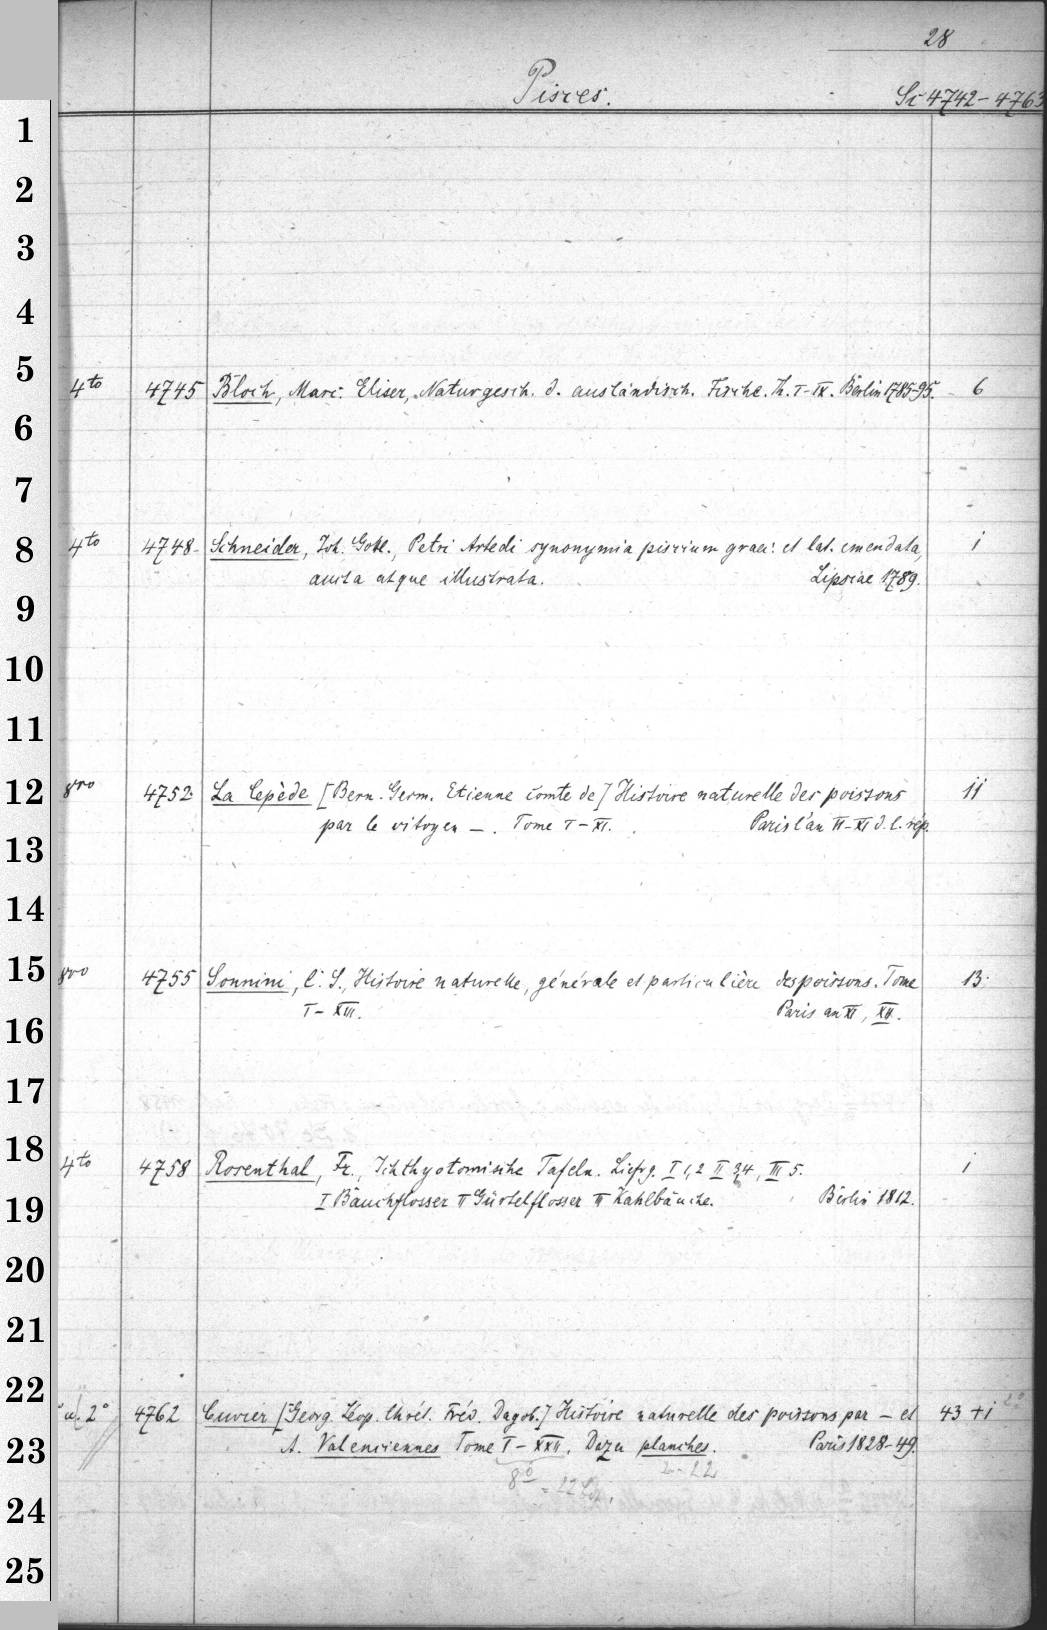 28
Pisces.
Sc 4742-4763
1
2
3
4
5
4to 4745 Bloch, Marc. Elieser, Naturgesch. d. ausländisch. Fische. Th. I-IX. Berlin 1785-95. 6
6
7
8
4to 4748 Schneider, Joh. Gottl., Petri Artedi synonymia piscium graec. et lat. emendata, 1
aucta atque illustrata. Lipsiae 1789.
9
10
11
12
8vo 4752 La Cepède [Bern. Germ. Etienne comte de] Histoire naturelle des poissons 11
par le citoyen —. Tome I-XI. Paris l'an VI-XI d. l. rép.
13
14
15
8vo 4755 Sonnini, C. S., Histoire naturelle, générale et particulière des poissons. Tome 13
I-XIII. Paris an XI, XII.
16
17
18
4to 4758 Rosenthal, Fr., Ichthyotomische Tafeln. Liefrg. I 1,2 II 3,4, III 5. 1
I Bauchflosser II Gürtelflosser III Kahlbäuche. Berlin 1812.
19
20
21
22
u. 2° 4762 Cuvier [Georg. Léop. Chrét. Fréd. Dagob.] Histoire naturelle des poissons par — et 43 + 1
23
A. Valenciennes Tome I-XXII. Dazu planches. Paris 1828-49.
8° = 22
24
25